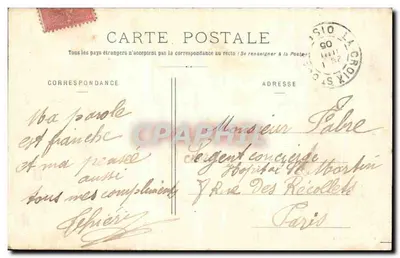 CARTE POSTALE
Tous les pays étrangers n'acceptent pas la correspondance au recto (Se renseigner à la Poste)
CORRESPONDANCE
ADRESSE
Ma parole
est franche
et ma pensée
aussi
tous mes compliments
Monsieur Fabre
Sergent concierge
Hopital St Martin
8 Rue des Récollets
Paris
LA CROIX ST
OISE
05